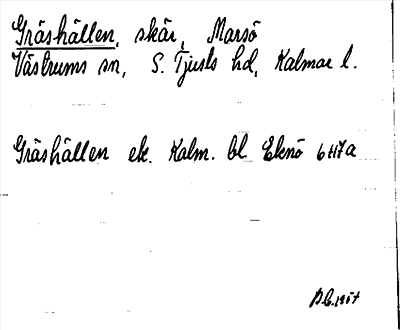 Gräshällen, skär, Marsö
Västrums sn, S. Tjusts hd, Kalmar l.
Gräshällen ek. Kalm. bl. Eknö 6 H7 a